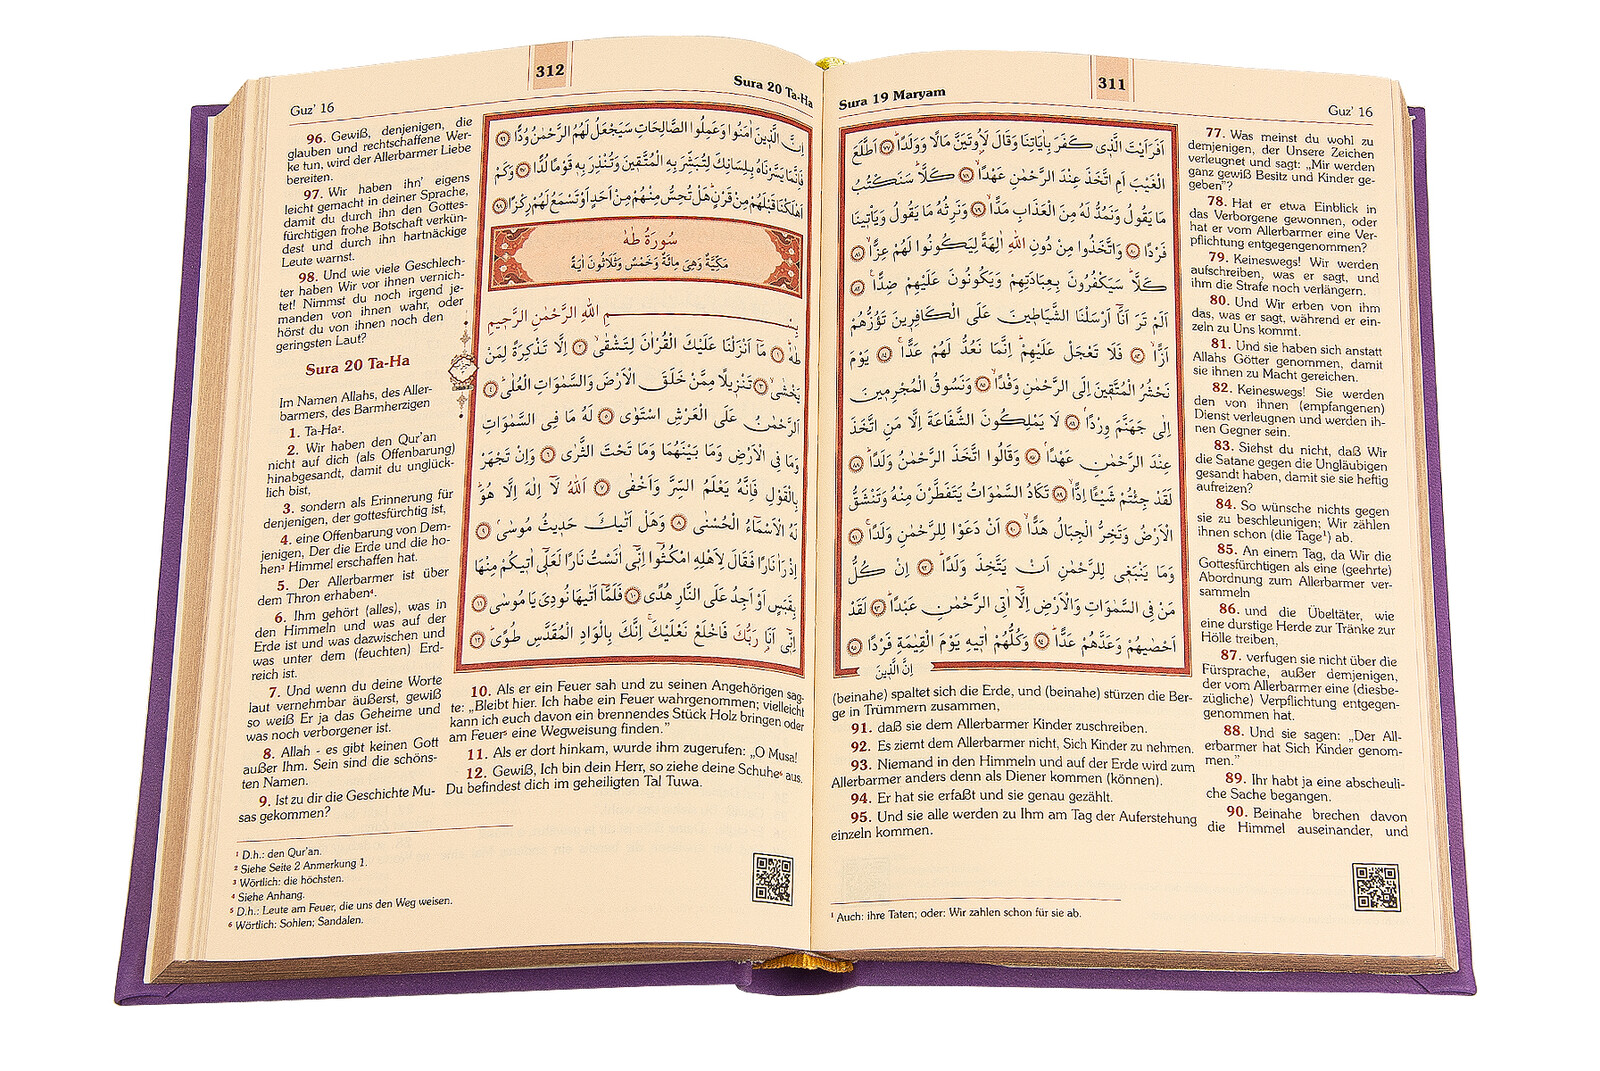 Sura 19 Maryam
311
Guz' 16
اَفَرَاَيْتَ الَّذ۪ي كَفَرَ بِاٰيَاتِنَا وَقَالَ لَاُو۫تَيَنَّ مَالًا وَوَلَدًاۜ ﴿٧٧﴾ اَطَّلَعَ
الْغَيْبَ اَمِ اتَّخَذَ عِنْدَ الرَّحْمٰنِ عَهْدًاۙ ﴿٧٨﴾ كَلَّاۜ سَنَكْتُبُ
مَا يَقُولُ وَنَمُدُّ لَهُ مِنَ الْعَذَابِ مَدًّاۙ ﴿٧٩﴾ وَنَرِثُهُ مَا يَقُولُ وَيَأْت۪ينَا
فَرْدًا ﴿٨٠﴾ وَاتَّخَذُوا مِنْ دُونِ اللّٰهِ اٰلِهَةً لِيَكُونُوا لَهُمْ عِزًّاۙ ﴿٨١﴾
كَلَّاۜ سَيَكْفُرُونَ بِعِبَادَتِهِمْ وَيَكُونُونَ عَلَيْهِمْ ضِدًّا۟ ﴿٨٢﴾
اَلَمْ تَرَ اَنَّٓا اَرْسَلْنَا الشَّيَاط۪ينَ عَلَى الْكَافِر۪ينَ تَؤُزُّهُمْ
اَزًّاۙ ﴿٨٣﴾ فَلَا تَعْجَلْ عَلَيْهِمْۜ اِنَّمَا نَعُدُّ لَهُمْ عَدًّاۚ ﴿٨٤﴾ يَوْمَ
نَحْشُرُ الْمُتَّق۪ينَ اِلَى الرَّحْمٰنِ وَفْدًاۙ ﴿٨٥﴾ وَنَسُوقُ الْمُجْرِم۪ينَ
اِلٰى جَهَنَّمَ وِرْدًاۢ ﴿٨٦﴾ لَا يَمْلِكُونَ الشَّفَاعَةَ اِلَّا مَنِ اتَّخَذَ
عِنْدَ الرَّحْمٰنِ عَهْدًاۢ ﴿٨٧﴾ وَقَالُوا اتَّخَذَ الرَّحْمٰنُ وَلَدًاۜ ﴿٨٨﴾
لَقَدْ جِئْتُمْ شَيْـًٔا اِدًّاۙ ﴿٨٩﴾ تَكَادُ السَّمٰوَاتُ يَتَفَطَّرْنَ مِنْهُ وَتَنْشَقُّ
الْاَرْضُ وَتَخِرُّ الْجِبَالُ هَدًّاۙ ﴿٩٠﴾ اَنْ دَعَوْا لِلرَّحْمٰنِ وَلَدًاۚ ﴿٩١﴾
وَمَا يَنْبَغ۪ي لِلرَّحْمٰنِ اَنْ يَتَّخِذَ وَلَدًاۜ ﴿٩٢﴾ اِنْ كُلُّ
مَنْ فِي السَّمٰوَاتِ وَالْاَرْضِ اِلَّٓا اٰتِي الرَّحْمٰنِ عَبْدًاۜ ﴿٩٣﴾ لَقَدْ
اَحْصٰيهُمْ وَعَدَّهُمْ عَدًّاۜ ﴿٩٤﴾ وَكُلُّهُمْ اٰت۪يهِ يَوْمَ الْقِيٰمَةِ فَرْدًا ﴿٩٥﴾
اِنَّ الَّذ۪ينَ
77. Was meinst du wohl zu
demjenigen, der Unsere Zeichen
verleugnet und sagt: „Mir werden
ganz gewiß Besitz und Kinder ge-
geben"?
78. Hat er etwa Einblick in
das Verborgene gewonnen, oder
hat er vom Allerbarmer eine Ver-
pflichtung entgegengenommen?
79. Keineswegs! Wir werden
aufschreiben, was er sagt, und
ihm die Strafe noch verlängern.
80. Und Wir erben von ihm
das, was er sagt, während er ein-
zeln zu Uns kommt.
81. Und sie haben sich anstatt
Allahs Götter genommen, damit
sie ihnen zu Macht gereichen.
82. Keineswegs! Sie werden
den von ihnen (empfangenen)
Dienst verleugnen und werden ih-
nen Gegner sein.
83. Siehst du nicht, daß Wir
die Satane gegen die Ungläubigen
gesandt haben, damit sie sie heftig
aufreizen?
84. So wünsche nichts gegen
sie zu beschleunigen; Wir zählen
ihnen schon (die Tage¹) ab.
85. An einem Tag, da Wir die
Gottesfürchtigen als eine (geehrte)
Abordnung zum Allerbarmer ver-
sammeln
86. und die Übeltäter, wie
eine durstige Herde zur Tränke zur
Hölle treiben,
87. verfugen sie nicht über die
Fürsprache, außer demjenigen,
der vom Allerbarmer eine (diesbe-
zügliche) Verpflichtung entgegen-
genommen hat.
88. Und sie sagen: „Der All-
erbarmer hat Sich Kinder genom-
men."
89. Ihr habt ja eine abscheuli-
che Sache begangen.
90. Beinahe brechen davon
die Himmel auseinander, und
(beinahe) spaltet sich die Erde, und (beinahe) stürzen die Ber-
ge in Trümmern zusammen,
91. daß sie dem Allerbarmer Kinder zuschreiben.
92. Es ziemt dem Allerbarmer nicht, Sich Kinder zu nehmen.
93. Niemand in den Himmeln und auf der Erde wird zum
Allerbarmer anders denn als Diener kommen (können).
94. Er hat sie erfaßt und sie genau gezählt.
95. Und sie alle werden zu Ihm am Tag der Auferstehung
einzeln kommen.
¹ Auch: ihre Taten; oder: Wir zahlen schon für sie ab.
Guz' 16
312
Sura 20 Ta-Ha
اِنَّ الَّذ۪ينَ اٰمَنُوا وَعَمِلُوا الصَّالِحَاتِ سَيَجْعَلُ لَهُمُ الرَّحْمٰنُ وُدًّا ﴿٩٦﴾
فَاِنَّمَا يَسَّرْنَاهُ بِلِسَانِكَ لِتُبَشِّرَ بِهِ الْمُتَّق۪ينَ وَتُنْذِرَ بِه۪ قَوْمًا لُدًّا ﴿٩٧﴾ وَكَمْ
اَهْلَكْنَا قَبْلَهُمْ مِنْ قَرْنٍۜ هَلْ تُحِسُّ مِنْهُمْ مِنْ اَحَدٍ اَوْ تَسْمَعُ لَهُمْ رِكْزًا ﴿٩٨﴾
سُورَةُ طٰهٰ
مَكِّيَّةٌ وَهِيَ مِائَةٌ وَخَمْسٌ وَثَلَاثُونَ اٰيَةً
بِسْمِ اللّٰهِ الرَّحْمٰنِ الرَّح۪يمِ
طٰهٰۜ ﴿١﴾ مَٓا اَنْزَلْنَا عَلَيْكَ الْقُرْاٰنَ لِتَشْقٰىۙ ﴿٢﴾ اِلَّا تَذْكِرَةً لِمَنْ
يَخْشٰىۙ ﴿٣﴾ تَنْز۪يلًا مِمَّنْ خَلَقَ الْاَرْضَ وَالسَّمٰوَاتِ الْعُلٰىۜ ﴿٤﴾
اَلرَّحْمٰنُ عَلَى الْعَرْشِ اسْتَوٰى ﴿٥﴾ لَهُ مَا فِي السَّمٰوَاتِ
وَمَا فِي الْاَرْضِ وَمَا بَيْنَهُمَا وَمَا تَحْتَ الثَّرٰى ﴿٦﴾ وَاِنْ تَجْهَرْ
بِالْقَوْلِ فَاِنَّهُ يَعْلَمُ السِّرَّ وَاَخْفٰى ﴿٧﴾ اَللّٰهُ لَٓا اِلٰهَ اِلَّا هُوَۜ
لَهُ الْاَسْمَٓاءُ الْحُسْنٰى ﴿٨﴾ وَهَلْ اَتٰيكَ حَد۪يثُ مُوسٰىۢ ﴿٩﴾
اِذْ رَاٰ نَارًا فَقَالَ لِاَهْلِهِ امْكُثُٓوا اِنّ۪ٓي اٰنَسْتُ نَارًا لَعَلّ۪ٓي اٰت۪يكُمْ مِنْهَا
بِقَبَسٍ اَوْ اَجِدُ عَلَى النَّارِ هُدًى ﴿١٠﴾ فَلَمَّٓا اَتٰيهَا نُودِيَ يَا مُوسٰى ﴿١١﴾
اِنّ۪ٓي اَنَا۬ رَبُّكَ فَاخْلَعْ نَعْلَيْكَۚ اِنَّكَ بِالْوَادِ الْمُقَدَّسِ طُوًىۜ ﴿١٢﴾
96. Gewiß, denjenigen, die
glauben und rechtschaffene Wer-
ke tun, wird der Allerbarmer Liebe
bereiten.
97. Wir haben ihn¹ eigens
leicht gemacht in deiner Sprache,
damit du durch ihn den Gottes-
fürchtigen frohe Botschaft verkün-
dest und durch ihn hartnäckige
Leute warnst.
98. Und wie viele Geschlech-
ter haben Wir vor ihnen vernich-
tet! Nimmst du noch irgend je-
manden von ihnen wahr, oder
hörst du von ihnen noch den
geringsten Laut?
Sura 20 Ta-Ha
Im Namen Allahs, des Aller-
barmers, des Barmherzigen
1. Ta-Ha².
2. Wir haben den Qur'an
nicht auf dich (als Offenbarung)
hinabgesandt, damit du unglück-
lich bist,
3. sondern als Erinnerung für
denjenigen, der gottesfürchtig ist,
4. eine Offenbarung von Dem-
jenigen, Der die Erde und die ho-
hen³ Himmel erschaffen hat.
5. Der Allerbarmer ist über
dem Thron erhaben⁴.
6. Ihm gehört (alles), was in
den Himmeln und was auf der
Erde ist und was dazwischen und
was unter dem (feuchten) Erd-
reich ist.
7. Und wenn du deine Worte
laut vernehmbar äußerst, gewiß
so weiß Er ja das Geheime und
was noch verborgener ist.
8. Allah - es gibt keinen Gott
außer Ihm. Sein sind die schöns-
ten Namen.
9. Ist zu dir die Geschichte Mu-
sas gekommen?
10. Als er ein Feuer sah und zu seinen Angehörigen sag-
te: „Bleibt hier. Ich habe ein Feuer wahrgenommen; vielleicht
kann ich euch davon ein brennendes Stück Holz bringen oder
am Feuer⁵ eine Wegweisung finden."
11. Als er dort hinkam, wurde ihm zugerufen: „O Musa!
12. Gewiß, Ich bin dein Herr, so ziehe deine Schuhe⁶ aus.
Du befindest dich im geheiligten Tal Tuwa.
¹ D.h.: den Qur'an.
² Siehe Seite 2 Anmerkung 1.
³ Wörtlich: die höchsten.
⁴ Siehe Anhang.
⁵ D.h.: Leute am Feuer, die uns den Weg weisen.
⁶ Wörtlich: Sohlen; Sandalen.